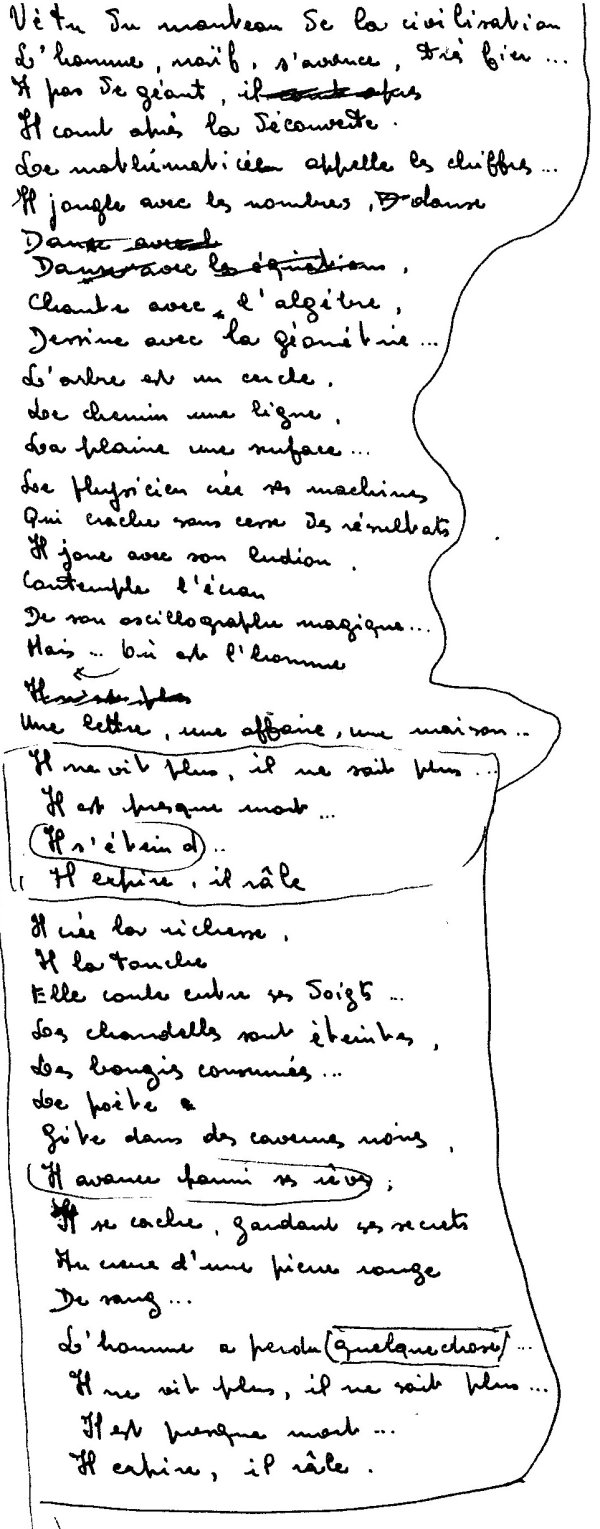 Vêtu du manteau de la civilisation
L'homme, naïf, s'avance, très fier ...
A pas de géant, il court après
Il court après la découverte.
Le mathématicien appelle les chiffres ...
Il jongle avec les nombres, danse
Danse avec le
Danse avec les équations,
Chante avec l'algèbre,
Dessine avec la géométrie ...
L'arbre est un cercle,
Le chemin une ligne,
La plaine une surface ...
Le physicien crée ses machines
Qui crache sans cesse des résultats
Il joue avec son ludion,
Contemple l'écran
De son oscillographe magique ...
Mais ... Où est l'homme
Il ne plus
Une lettre, une affaire, une maison ..
Il ne vit plus, il ne sait plus ...
Il est presque mort ...
Il s'éteind ..
Il expire, il râle
Il crée la richesse,
Il la touche
Elle coule entre ses doigts ...
Les chandelles sont éteintes,
Les bougies consumées ...
Le poète
Gîte dans des cavernes noires,
Il avance parmi ses rêves,
Il se cache, gardant ses secrets
Au creux d'une pierre rouge
De sang ...
L'homme a perdu quelque chose ...
Il ne vit plus, il ne sait plus ...
Il est presque mort ...
Il expire, il râle.